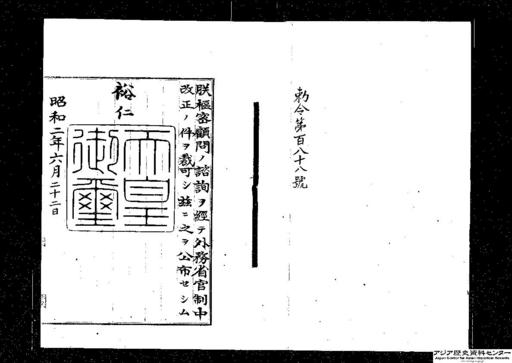 勅令第百八十八號
朕樞密顧問ノ諮詢ヲ經テ外務省官制中
改正ノ件ヲ裁可シ茲ニ之ヲ公布セシム
裕仁
天皇御璽
昭和二年六月二十二日
アジア歴史資料センター
Japan Center for Asian Historical Records